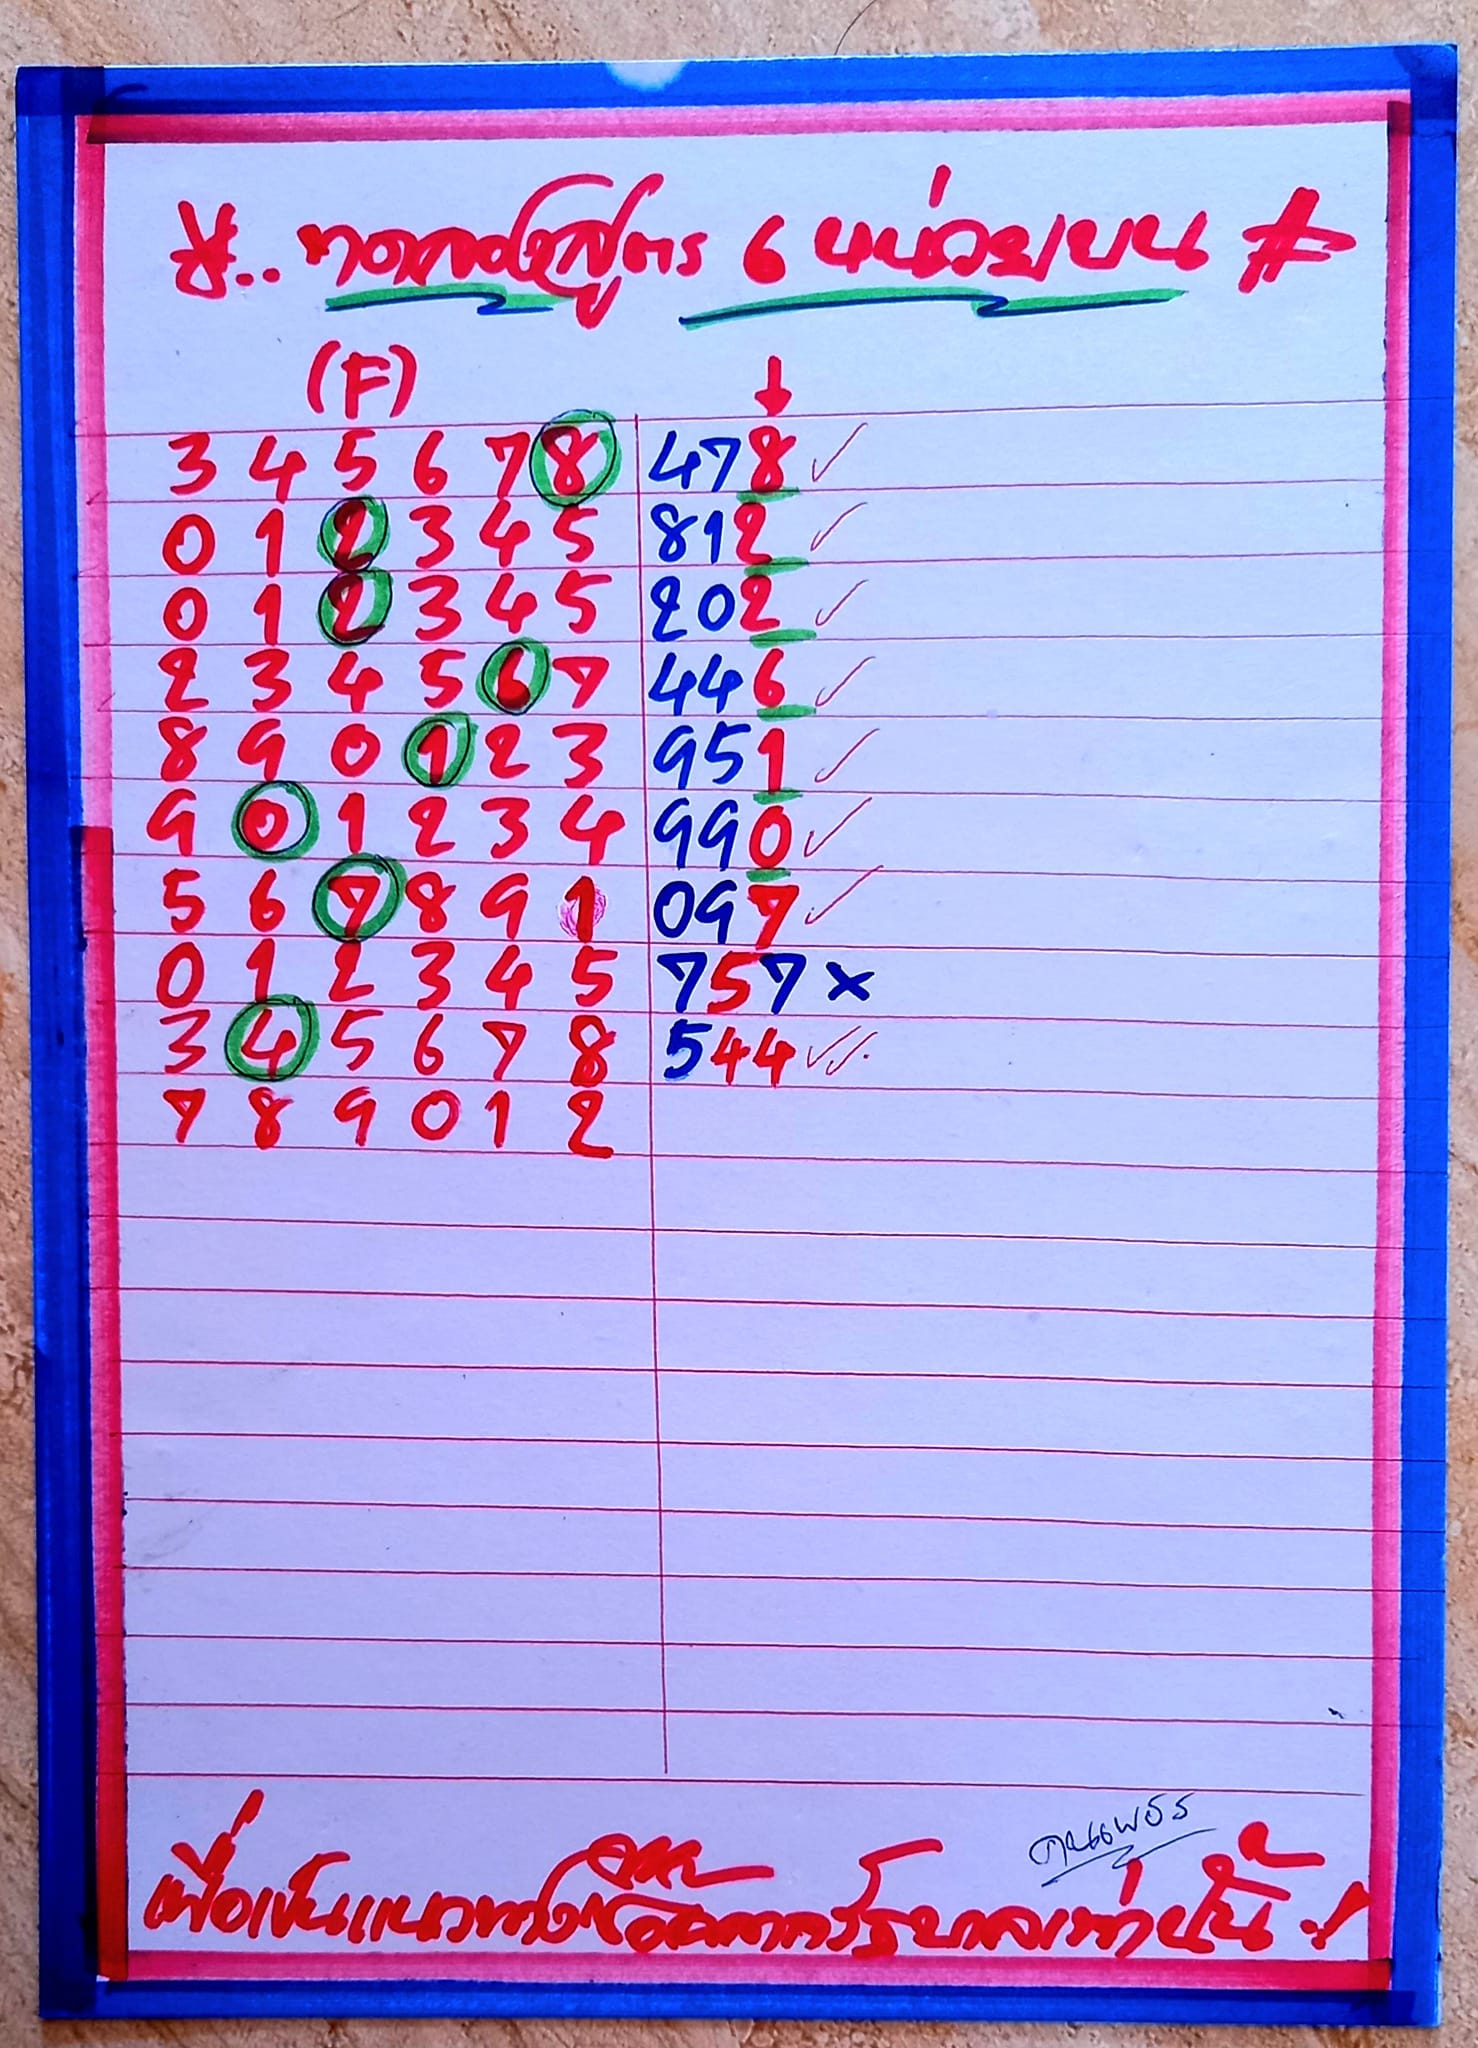 ทดลองสูตร 6 หน่วยบน #
(F) ↓
3 4 5 6 7 8 478 ✓
0 1 2 3 4 5 812 ✓
0 1 2 3 4 5 202 ✓
2 3 4 5 6 7 446 ✓
8 9 0 1 2 3 951 ✓
9 0 1 2 3 4 990 ✓
5 6 7 8 9 1 097 ✓
0 1 2 3 4 5 757 ×
3 4 5 6 7 8 544 ✓✓
7 8 9 0 1 2
เพื่อเป็นแนวทางสลากรัฐบาลเท่านั้น !